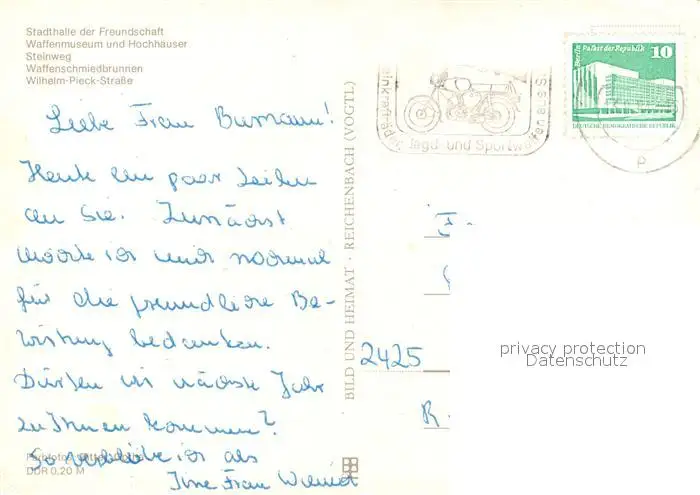 Stadthalle der Freundschaft
Waffenmuseum und Hochhäuser
Steinweg
Waffenschmiedbrunnen
Wilhelm-Pieck-Straße
Liebe Frau
Heute ein paar Zeilen
an Sie. Zunächst
möchte ich mich nochmal
für die freundliche Be-
wirtung bedanken.
Dürfen wir nächste Jahr
zu Ihnen kommen?
So verbleibe ich als
Ihre Frau
DDR 0,20 M
BILD UND HEIMAT · REICHENBACH (VOGTL)
Jagd- und Sportwaffen
Berlin Palast der Republik
10
DEUTSCHE DEMOKRATISCHE REPUBLIK
F
2425
R.
privacy protection
Datenschutz